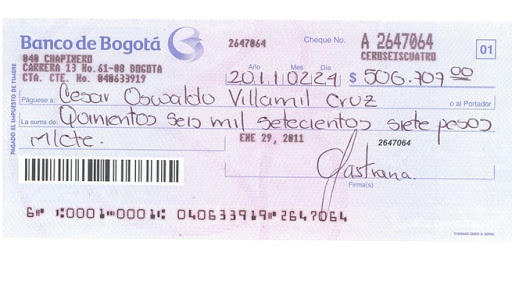 Banco de Bogotá
2647064
Cheque No.
A 2647064
CEROSEISCUATRO
01
040 CHAPINERO
CARRERA 13 No.61-08 BOGOTA
CTA. CTE. No. 040633919
Año Mes Día
2011 02 24 $ 506.707 00
Páguese a: Cesar Oswaldo Villamil Cruz o al Portador
La suma de: Quinientos seis mil setecientos siete pesos
Mlcte.
ENE 29, 2011
2647064
Pastrana
Firma(s)
PAGADO EL IMPUESTO DE TIMBRE
6 0001 0001 040633919 2647064
THOMAS GREG & SONS.